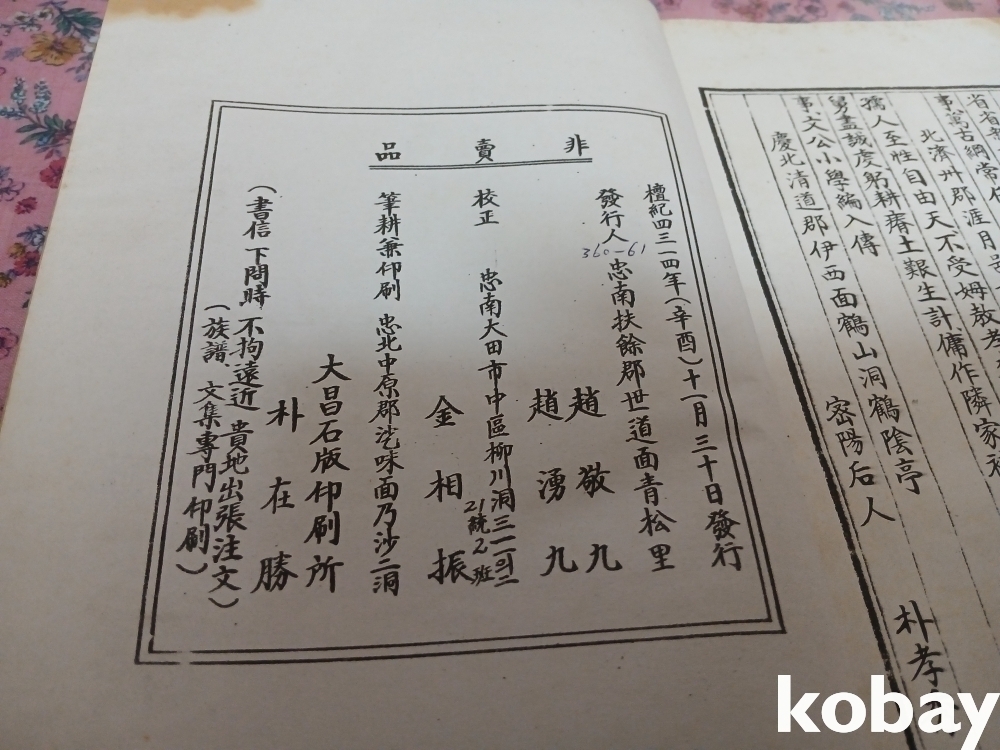 非賣品
檀紀四三一四年(辛酉)十一月三十日發行
發行人 忠南扶餘郡世道面青松里
360-61
趙敬九
趙湧九
校正 忠南大田市中區柳川洞三一一의二
21統2班
金相振
筆耕兼印刷 忠北中原郡沙味面乃沙二洞
大昌石版印刷所
朴在勝
(書信下問時 不拘遠近 貴地出張注文)
(族譜、文集專門印刷)
事萬古綱常
北濟州郡涯月
孺人至性自由天不受姆教孝
舅盡誠虔躬耕瘠土艱生計傭作隣家
事文公小學編入傳
慶北清道郡伊西面鶴山洞鶴陰亭
密陽后人
朴孝
kobay